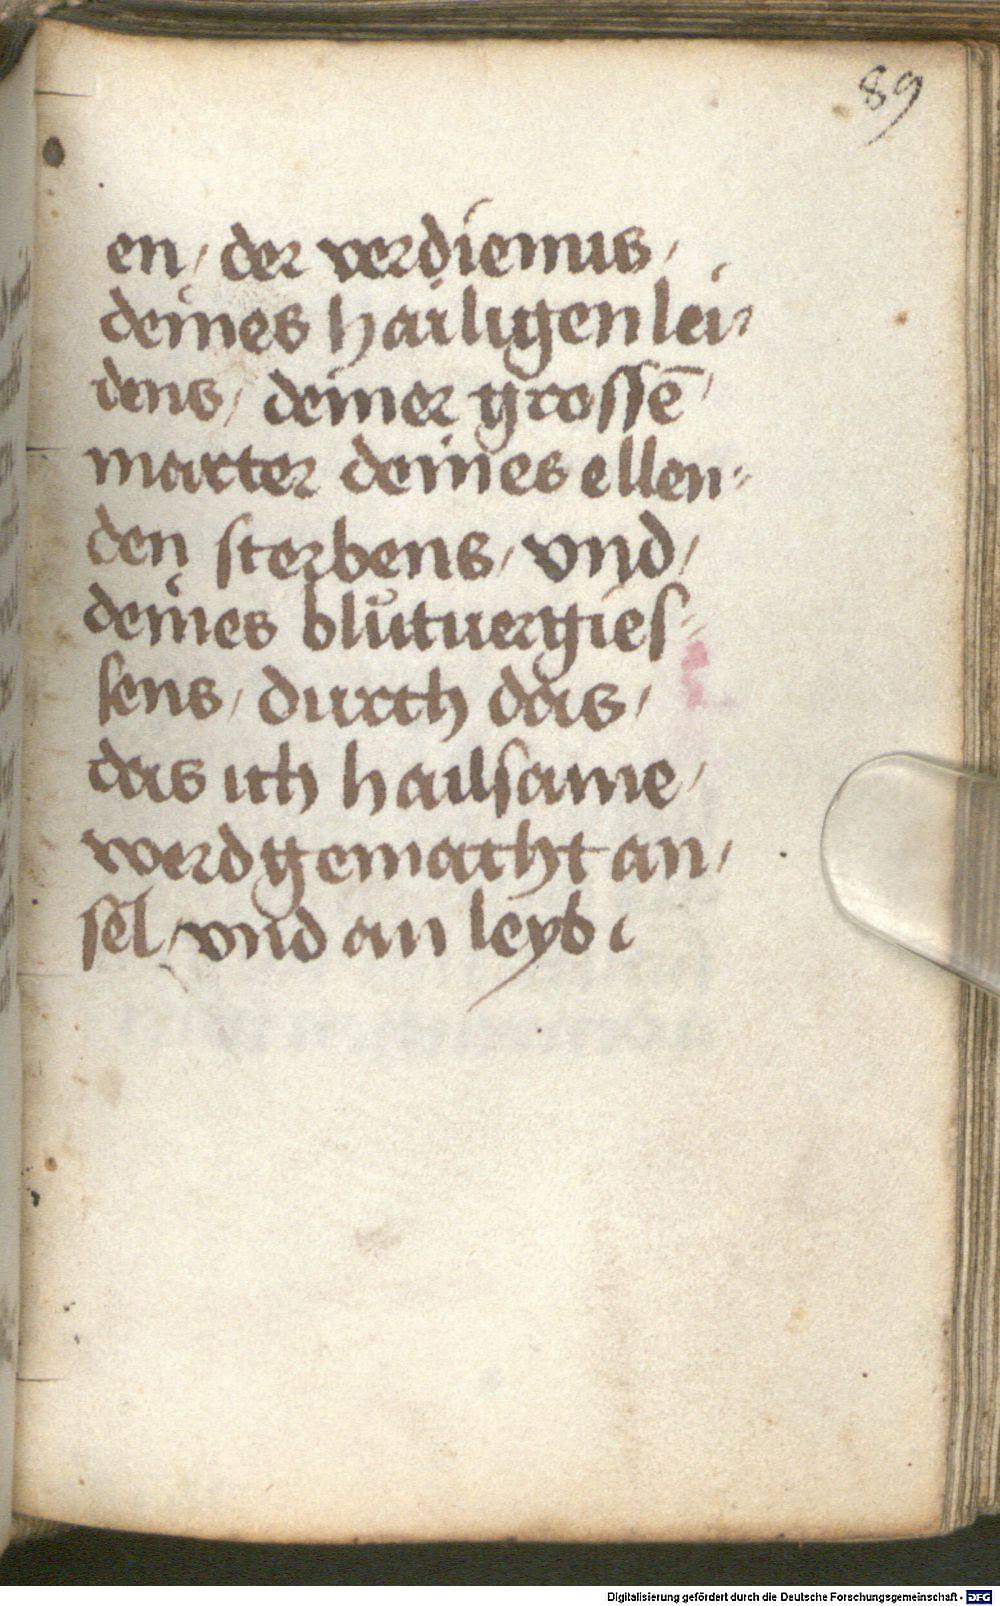 89
en / der verdienus /
deines hailigen lei/
dens / deiner grossē /
marter deines ellen=
den sterbens / vnd /
deines blůtuergies=
sens / durch das /
das ich hailsame /
werd gemacht an /
sel / vnd an leyb
Digitalisierung gefördert durch die Deutsche Forschungsgemeinschaft - DFG